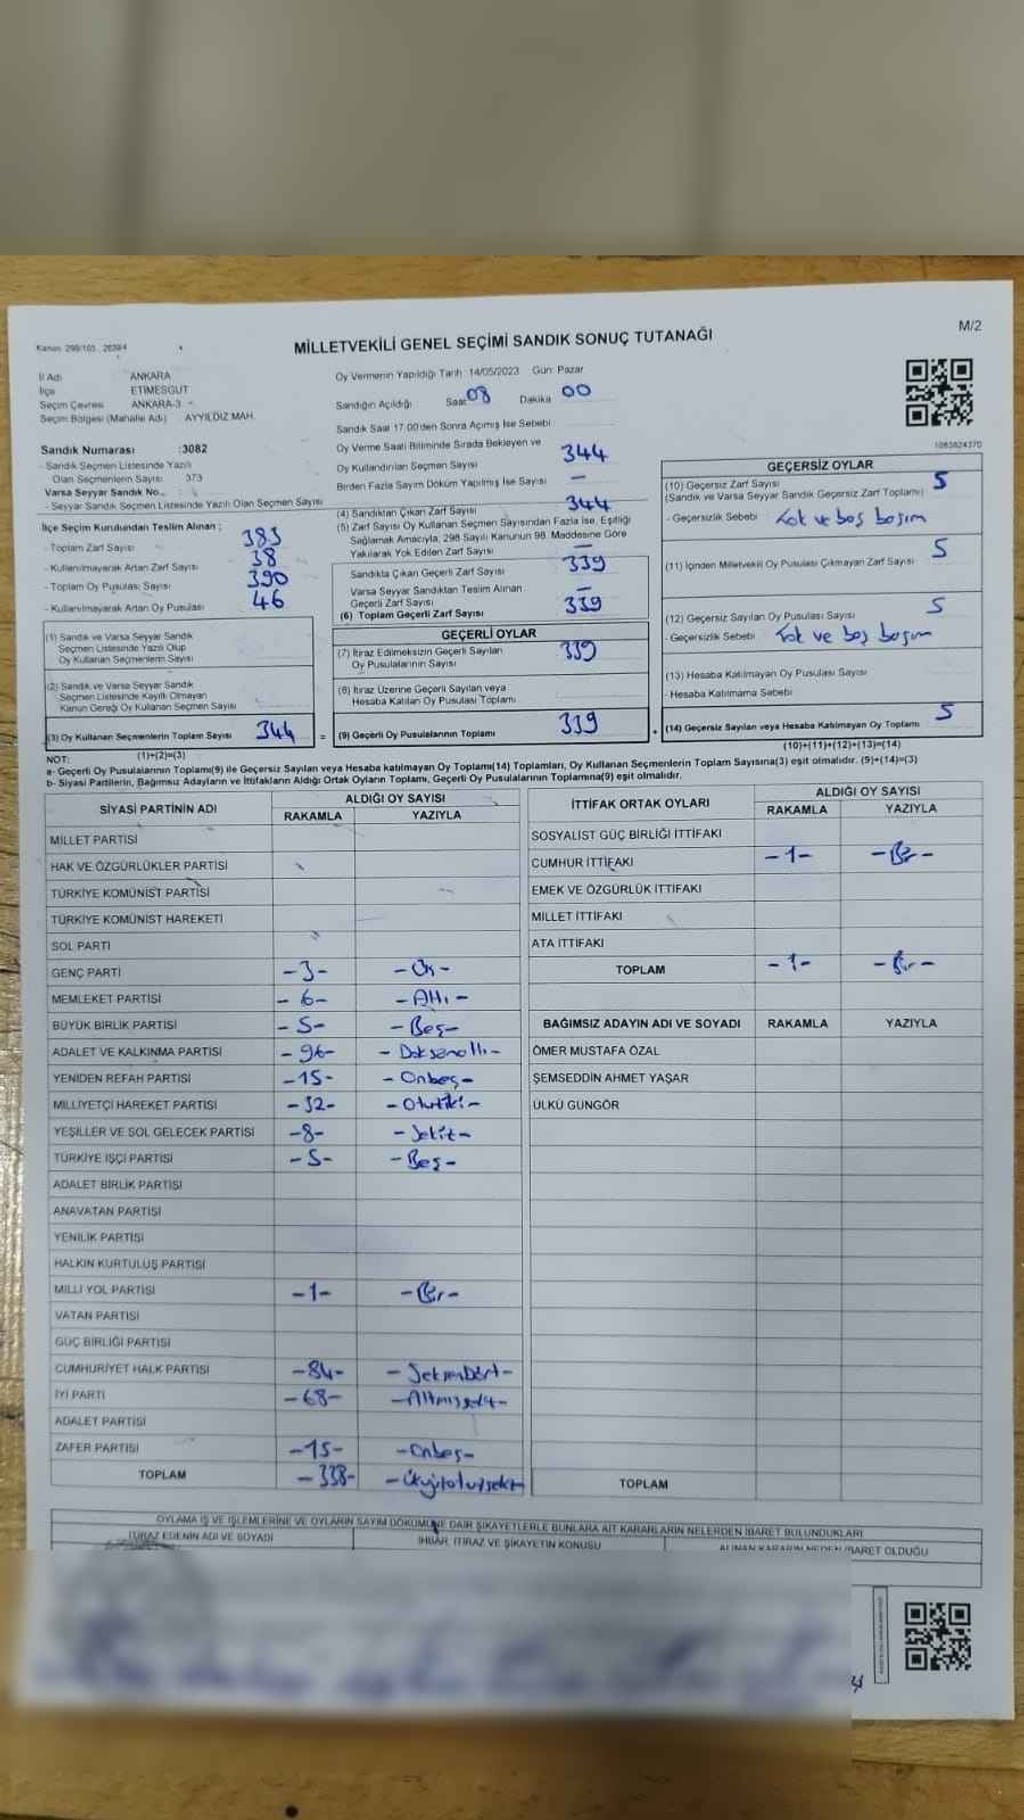 Kanun 298/105 , 2839/4
M/2
MİLLETVEKİLİ GENEL SEÇİMİ SANDIK SONUÇ TUTANAĞI
İl Adı ANKARA
İlçe ETİMESGUT
Seçim Çevresi ANKARA-3
Seçim Bölgesi (Mahalle Adı) AYYILDIZ MAH.
Sandık Numarası :3082
- Sandık Seçmen Listesinde Yazılı
Olan Seçmenlerin Sayısı 373
Varsa Seyyar Sandık No.. :
- Seyyar Sandık Seçmen Listesinde Yazılı Olan Seçmen Sayısı
İlçe Seçim Kurulundan Teslim Alınan ;
- Toplam Zarf Sayısı 383
- Kullanılmayarak Artan Zarf Sayısı 38
- Toplam Oy Pusulası Sayısı 390
- Kullanılmayarak Artan Oy Pusulası 46
(1) Sandık ve Varsa Seyyar Sandık
Seçmen Listesinde Yazılı Olup
Oy Kullanan Seçmenlerin Sayısı
(2) Sandık ve Varsa Seyyar Sandık
Seçmen Listesinde Kayıtlı Olmayan
Kanun Gereği Oy Kullanan Seçmen Sayısı
(3) Oy Kullanan Seçmenlerin Toplam Sayısı 344
(1)+(2)=(3)
Oy Vermenin Yapıldığı Tarih: 14/05/2023 Gün: Pazar
Sandığın Açıldığı Saat 08 Dakika 00
Sandık Saat 17.00'den Sonra Açılmış İse Sebebi
Oy Verme Saati Bitiminde Sırada Bekleyen ve
Oy Kullandırılan Seçmen Sayısı 344
Birden Fazla Sayım Döküm Yapılmış İse Sayısı -
(4) Sandıktan Çıkan Zarf Sayısı 344
(5) Zarf Sayısı Oy Kullanan Seçmen Sayısından Fazla İse, Eşitliği
Sağlamak Amacıyla, 298 Sayılı Kanunun 98. Maddesine Göre
Yakılarak Yok Edilen Zarf Sayısı -
Sandıkta Çıkan Geçerli Zarf Sayısı 339
Varsa Seyyar Sandıktan Teslim Alınan
Geçerli Zarf Sayısı -
(6) Toplam Geçerli Zarf Sayısı 339
GEÇERLİ OYLAR
(7) İtiraz Edilmeksizin Geçerli Sayılan
Oy Pusulalarının Sayısı 339
(8) İtiraz Üzerine Geçerli Sayılan veya
Hesaba Katılan Oy Pusulası Toplamı
= (9) Geçerli Oy Pusulalarının Toplamı 339
1063824370
GEÇERSİZ OYLAR
(10) Geçersiz Zarf Sayısı 5
(Sandık ve Varsa Seyyar Sandık Geçersiz Zarf Toplamı)
- Geçersizlik Sebebi ve boş basım
(11) İçinden Milletvekili Oy Pusulası Çıkmayan Zarf Sayısı 5
(12) Geçersiz Sayılan Oy Pusulası Sayısı 5
- Geçersizlik Sebebi ve boş basım
(13) Hesaba Katılmayan Oy Pusulası Sayısı
- Hesaba Katılmama Sebebi
+ (14) Geçersiz Sayılan veya Hesaba Katılmayan Oy Toplamı 5
(10)+(11)+(12)+(13)=(14)
NOT:
a- Geçerli Oy Pusulalarının Toplamı(9) ile Geçersiz Sayılan veya Hesaba katılmayan Oy Toplamı(14) Toplamları, Oy Kullanan Seçmenlerin Toplam Sayısına(3) eşit olmalıdır. (9)+(14)=(3)
b- Siyasi Partilerin, Bağımsız Adayların ve İttifakların Aldığı Ortak Oyların Toplamı, Geçerli Oy Pusulalarının Toplamına(9) eşit olmalıdır.
SİYASİ PARTİNİN ADI ALDIĞI OY SAYISI
RAKAMLA YAZIYLA
MİLLET PARTİSİ
HAK VE ÖZGÜRLÜKLER PARTİSİ
TÜRKİYE KOMÜNİST PARTİSİ
TÜRKİYE KOMÜNİST HAREKETİ
SOL PARTİ
GENÇ PARTİ -3- -Üç-
MEMLEKET PARTİSİ -6- -Altı-
BÜYÜK BİRLİK PARTİSİ -5- -Beş-
ADALET VE KALKINMA PARTİSİ -96- -Doksanaltı-
YENİDEN REFAH PARTİSİ -15- -Onbeş-
MİLLİYETÇİ HAREKET PARTİSİ -32- -Otuziki-
YEŞİLLER VE SOL GELECEK PARTİSİ -8- -Sekiz-
TÜRKİYE İŞÇİ PARTİSİ -5- -Beş-
ADALET BİRLİK PARTİSİ
ANAVATAN PARTİSİ
YENİLİK PARTİSİ
HALKIN KURTULUŞ PARTİSİ
MİLLİ YOL PARTİSİ -1- -Bir-
VATAN PARTİSİ
GÜÇ BİRLİĞİ PARTİSİ
CUMHURİYET HALK PARTİSİ -84- -Seksendört-
İYİ PARTİ -68- -Altmışsekiz-
ADALET PARTİSİ
ZAFER PARTİSİ -15- -Onbeş-
TOPLAM -338- -Üçyüzotuzsekiz
İTTİFAK ORTAK OYLARI ALDIĞI OY SAYISI
RAKAMLA YAZIYLA
SOSYALİST GÜÇ BİRLİĞİ İTTİFAKI
CUMHUR İTTİFAKI -1- -Bir-
EMEK VE ÖZGÜRLÜK İTTİFAKI
MİLLET İTTİFAKI
ATA İTTİFAKI
TOPLAM -1- -Bir-
BAĞIMSIZ ADAYIN ADI VE SOYADI RAKAMLA YAZIYLA
ÖMER MUSTAFA ÖZAL
ŞEMSEDDİN AHMET YAŞAR
ÜLKÜ GÜNGÖR
TOPLAM
OYLAMA İŞ VE İŞLEMLERİNE VE OYLARIN SAYIM DÖKÜMÜNE DAİR ŞİKAYETLERLE BUNLARA AİT KARARLARIN NELERDEN İBARET BULUNDUKLARI
İTİRAZ EDENİN ADI VE SOYADI İHBAR, İTİRAZ VE ŞİKAYETİN KONUSU ALINAN KARARIN NEDEN İBARET OLDUĞU